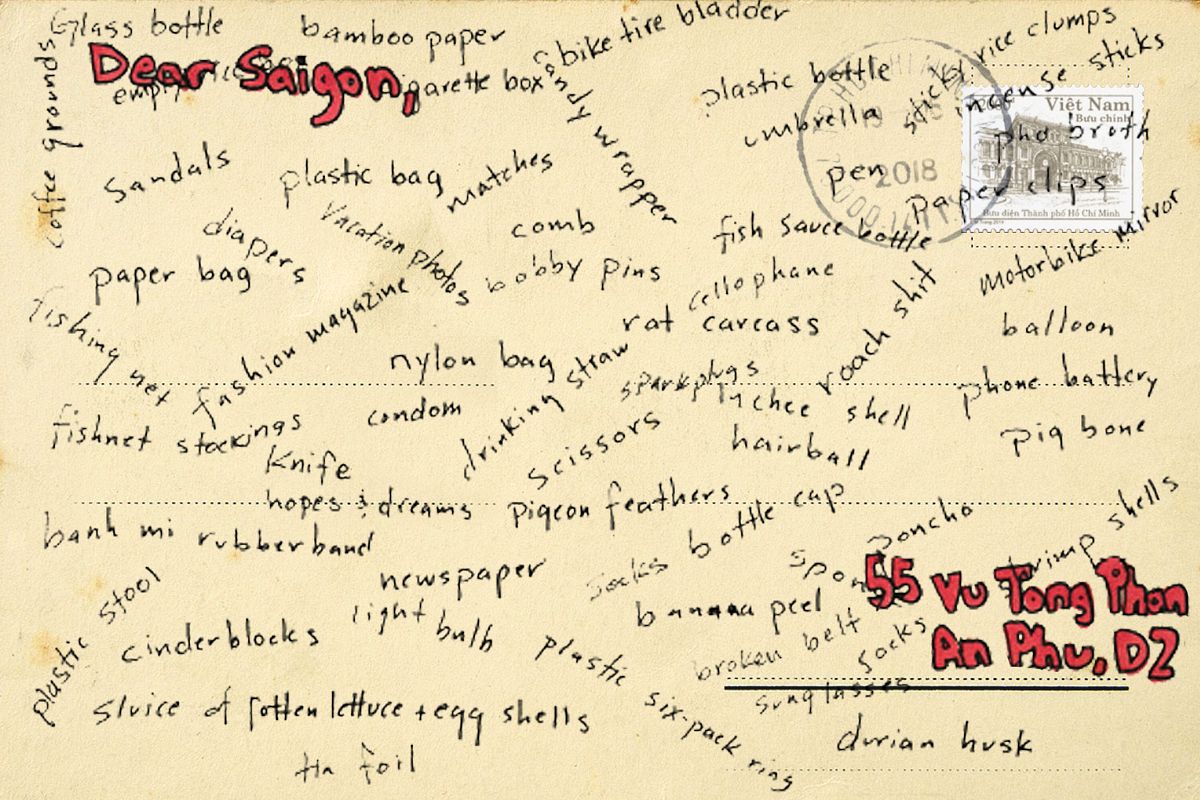 Glass bottle
bamboo paper
bike tire bladder
sticky rice clumps
Dear Saigon,
coffee grounds
empty
garette box
candy wrapper
plastic bottle
incense sticks
umbrella
Việt Nam
Bưu chính
pho broth
Sandals
plastic bag
matches
pen
2018
paper clips
Bưu điện Thành phố Hồ Chí Minh
diapers
vacation photos
comb
fish sauce bottle
motorbike mirror
paper bag
bobby pins
cellophane
fishing net
fashion magazine
rat carcass
roach shit
balloon
nylon bag
drinking straw
sparkplugs
phone battery
fishnet stockings
condom
scissors
lychee shell
pig bone
Knife
hairball
hopes & dreams
pigeon feathers
bottle cap
poncho
shrimp shells
banh mi rubberband
newspaper
socks
55 Vu Tong Phan
An Phu, D2
plastic stool
cinderblocks
light bulb
banana peel
plastic six-pack ring
broken belt
socks
sunglasses
sluice of rotten lettuce + egg shells
durian husk
tin foil